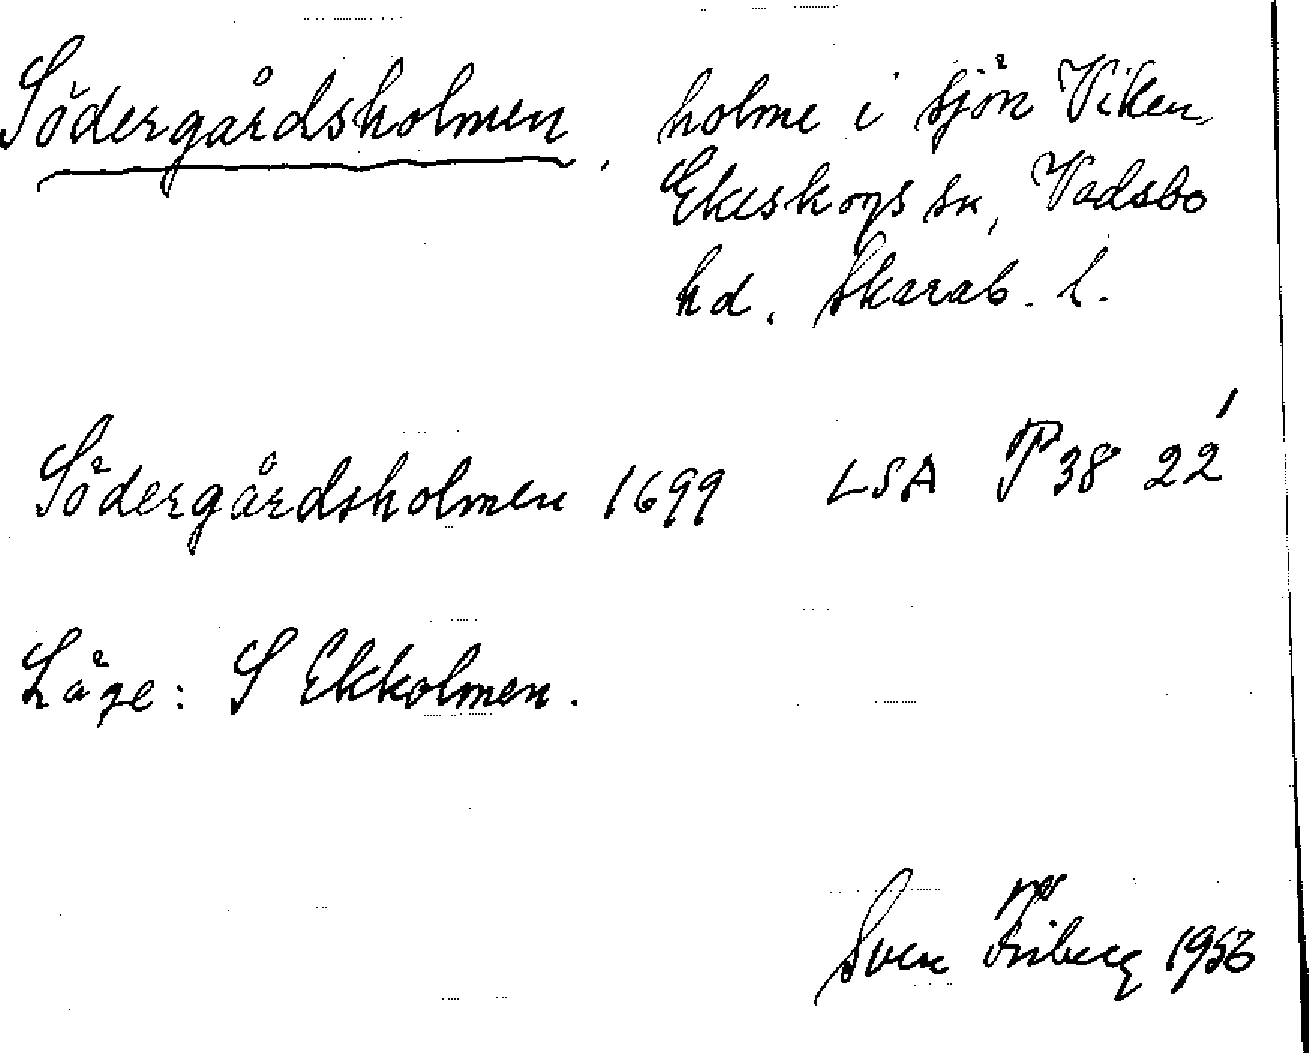 Södergårdsholmen. holme i sjön Viken,
Ekeskogs sn, Vadsbo
hd. Skarab. l.
Södergårdsholmen 1699 LSA P38 22'
Läge: S Ekholmen.
Sven Friberg 1956